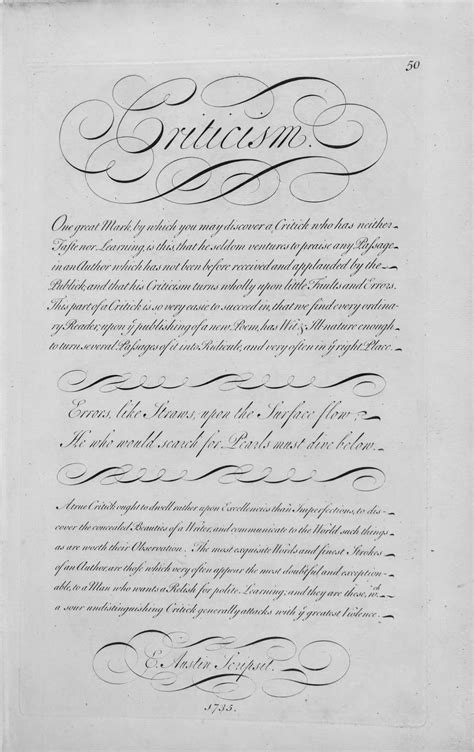 50
Criticism.
One great Mark, by which you may discover a Critick who has neither
Taste nor Learning, is this, that he seldom ventures to praise any Passage
in an Author which has not been before received and applauded by the
Publick, and that his Criticism turns wholly upon little Faults and Errors.
This part of a Critick is so very easie to succeed in, that we find every ordina-
ry Reader, upon ẏ publishing of a new Poem, has Wit & Ill nature enough
to turn several Passages of it into Ridicule, and very often in ẏ right Place.
Errors, like Straws, upon the Surface flow;
He who would search for Pearls must dive below.
A true Critick ought to dwell rather upon Excellencies than Imperfections, to dis-
cover the concealed Beauties of a Writer, and communicate to the World such things
as are worth their Observation. The most exquisite Words and finest Strokes
of an Author, are those which very often appear the most doubtful and exception-
able, to a Man who wants a Relish for polite Learning; and they are these, wᶜʰ
a sour undistinguishing Critick generally attacks with ẏ greatest Violence.
E. Austin Scripsit.
1735.